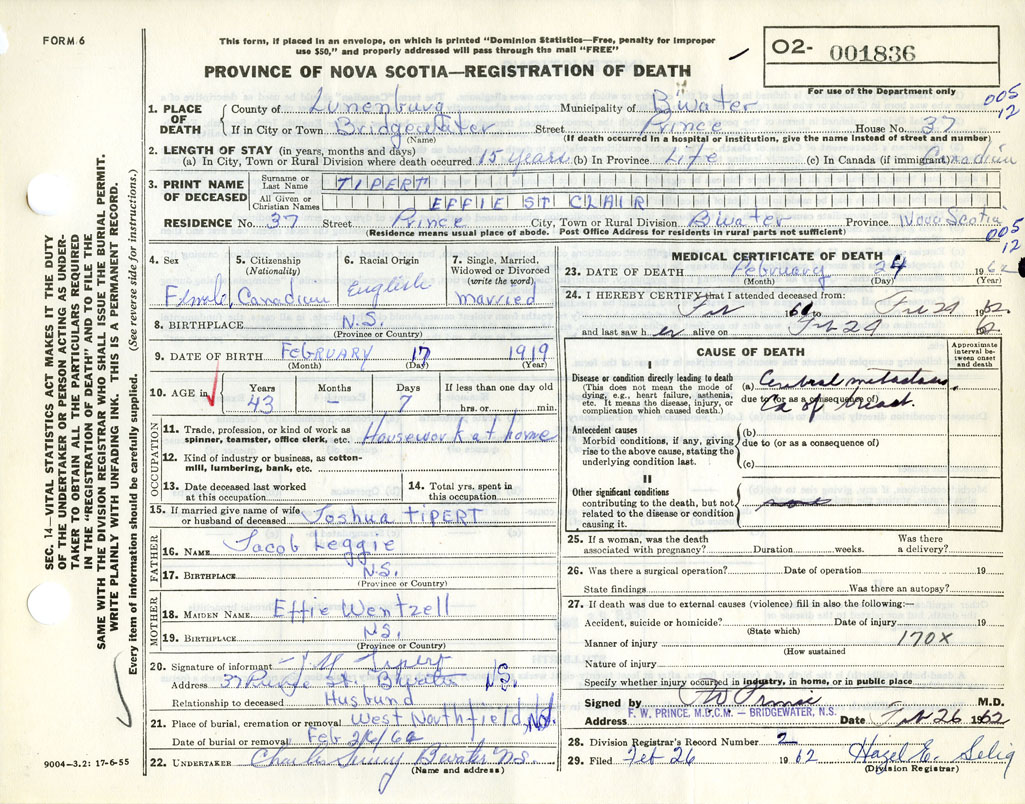 FORM 6
This form, if placed in an envelope, on which is printed "Dominion Statistics—Free, penalty for improper
use $50," and properly addressed will pass through the mail "FREE"
PROVINCE OF NOVA SCOTIA—REGISTRATION OF DEATH
02- 001836
For use of the Department only
005
12
1. PLACE OF DEATH
County of Lunenburg Municipality of B'water
If in City or Town Bridgewater Street Prince House No. 37
(Name) (If death occurred in a hospital or institution, give the name instead of street and number)
2. LENGTH OF STAY (in years, months and days)
(a) In City, Town or Rural Division where death occurred 15 years (b) In Province Life (c) In Canada (if immigrant) Canadian
3. PRINT NAME OF DECEASED
Surname or Last Name TIPERT
All Given or Christian Names EFFIE ST CLAIR
RESIDENCE No. 37 Street Prince City, Town or Rural Division B'water Province Nova Scotia
(Residence means usual place of abode. Post Office Address for residents in rural parts not sufficient)
005
12
4. Sex Female
5. Citizenship (Nationality) Canadian
6. Racial Origin English
7. Single, Married, Widowed or Divorced (write the word) married
8. BIRTHPLACE N.S.
(Province or Country)
9. DATE OF BIRTH February 17 1919
(Month) (Day) (Year)
10. AGE in
Years Months Days If less than one day old
43 — 7 hrs. or min.
OCCUPATION
11. Trade, profession, or kind of work as
spinner, teamster, office clerk, etc. Housework at home
12. Kind of industry or business, as cotton-
mill, lumbering, bank, etc.
13. Date deceased last worked
at this occupation
14. Total yrs. spent in
this occupation
15. If married give name of wife
or husband of deceased Joshua TIPERT
FATHER
16. NAME Jacob Leggie
17. BIRTHPLACE N.S.
(Province or Country)
MOTHER
18. MAIDEN NAME Effie Wentzell
19. BIRTHPLACE N.S.
(Province or Country)
20. Signature of informant Tipert
Address 37 Prince St. B'water N.S.
Relationship to deceased Husband
21. Place of burial, cremation or removal West Northfield, N.S.
Date of burial or removal Feb 26/62
22. UNDERTAKER Charles B'water N.S.
(Name and address)
MEDICAL CERTIFICATE OF DEATH
23. DATE OF DEATH February 24 1962
(Month) (Day) (Year)
24. I HEREBY CERTIFY that I attended deceased from:
Feb 1961 to Feb 24 1962
and last saw her alive on Feb 24 62
CAUSE OF DEATH
Approximate interval between onset and death
I
Disease or condition directly leading to death
(This does not mean the mode of
dying, e.g., heart failure, asthenia,
etc. It means the disease, injury, or
complication which caused death.)
(a)
due to (or as a consequence of)
Ca of Breast.
Antecedent causes
Morbid conditions, if any, giving
rise to the above cause, stating the
underlying condition last.
(b)
due to (or as a consequence of)
(c)
II
Other significant conditions
contributing to the death, but not
related to the disease or condition
causing it.
25. If a woman, was the death
associated with pregnancy? Duration weeks. Was there
a delivery?
26. Was there a surgical operation? Date of operation 19
State findings Was there an autopsy?
27. If death was due to external causes (violence) fill in also the following:—
Accident, suicide or homicide? Date of injury 19
(State which)
Manner of injury 170X
(How sustained
Nature of injury
Specify whether injury occurred in industry, in home, or in public place
Signed by F W Prince M.D.
F. W. PRINCE, M.D.C.M. — BRIDGEWATER, N.S.
Address Date Feb 26 1962
28. Division Registrar's Record Number 2
29. Filed Feb 26 1962 Hazel E. Selig
(Division Registrar)
SEC. 14—VITAL STATISTICS ACT MAKES IT THE DUTY
OF THE UNDERTAKER OR PERSON ACTING AS UNDER-
TAKER TO OBTAIN ALL THE PARTICULARS REQUIRED
IN THE "REGISTRATION OF DEATH" AND TO FILE THE
SAME WITH THE DIVISION REGISTRAR WHO SHALL ISSUE THE BURIAL PERMIT.
WRITE PLAINLY WITH UNFADING INK. THIS IS A PERMANENT RECORD.
Every item of information should be carefully supplied. (See reverse side for instructions.)
9004—3.2: 17-6-55